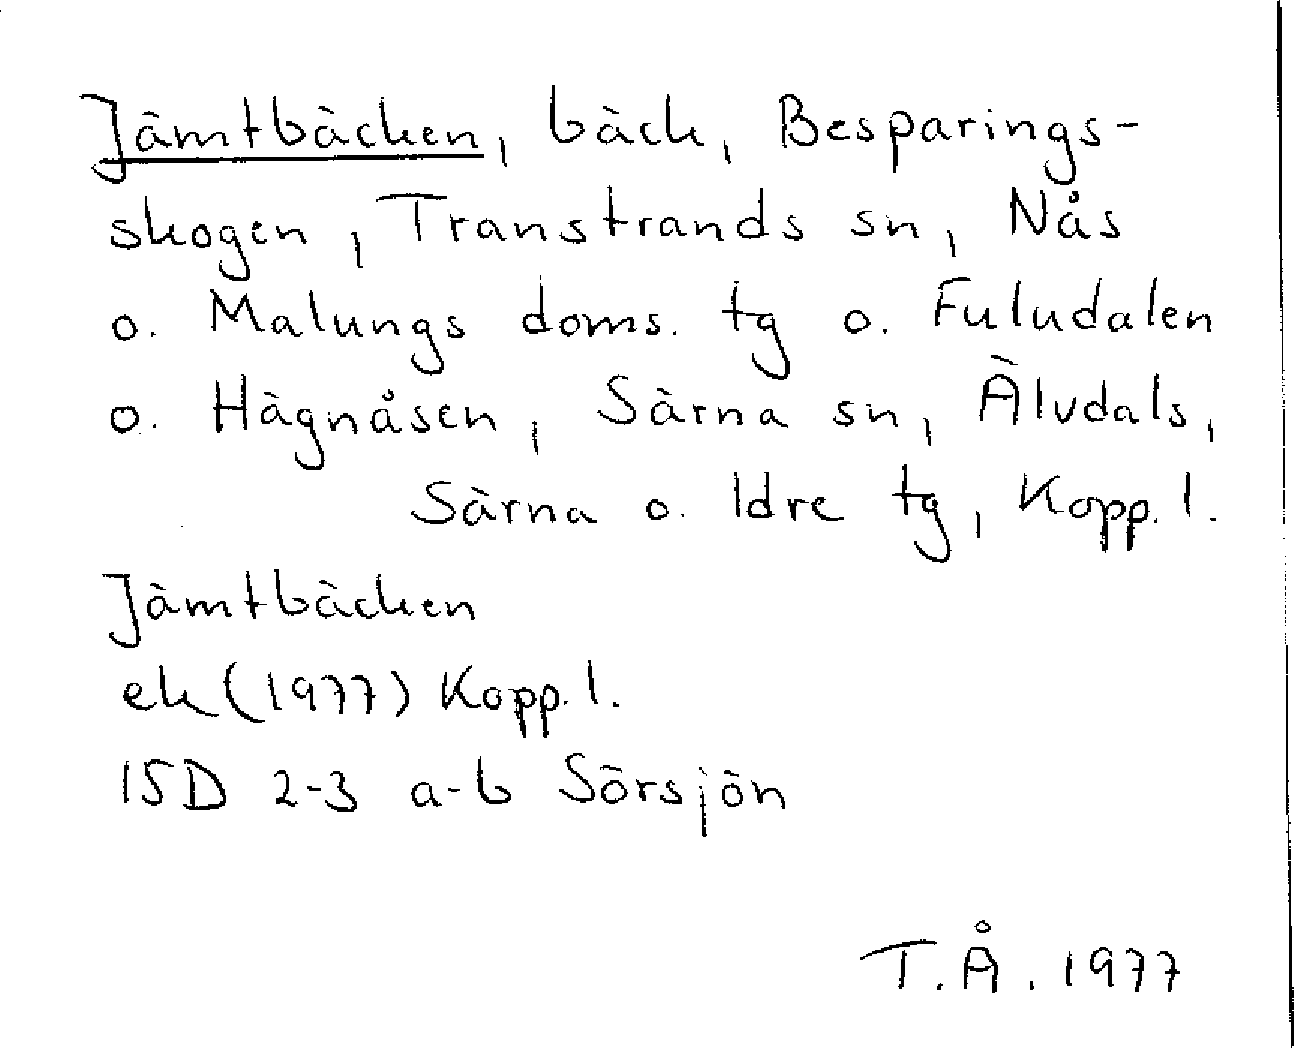 Jämtbäcken, bäck, Besparings-
skogen, Transtrands sn, Nås
o. Malungs doms. tg o. Fuludalen
o. Hägnåsen, Särna sn, Älvdals,
Särna o. Idre tg, Kopp. l.
Jämtbäcken
ek (1977) Kopp. l.
15D 2-3 a-b Sörsjön
T.Å. 1977